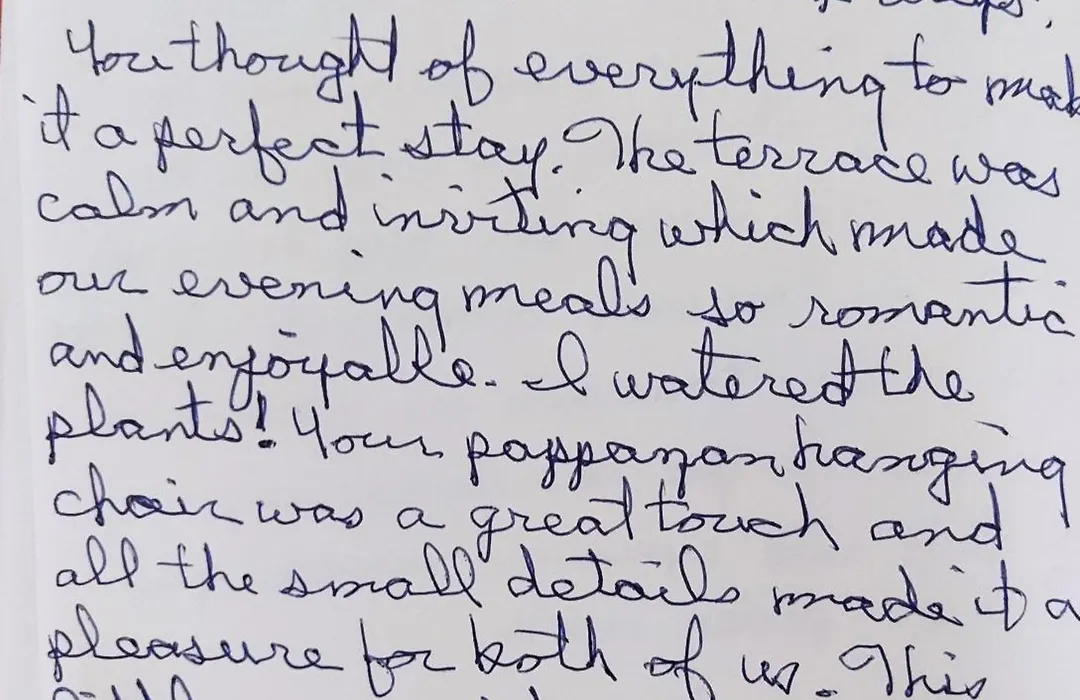 You thought of everything to mak
it a perfect stay. The terrace was
calm and inviting which made
our evening meals so romantic
and enjoyable. I watered the
plants! Your pappazan hanging
chair was a great touch and
all the small details made it a
pleasure for both of us. This